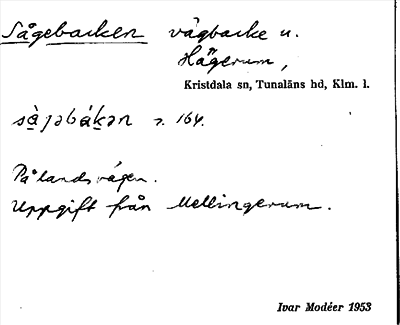 Sågebacken vägbacke u.
Hägerum,
Kristdala sn, Tunaläns hd, Klm. l.
På landsvägen.
Uppgift från Mellingerum.
Ivar Modéer 1953